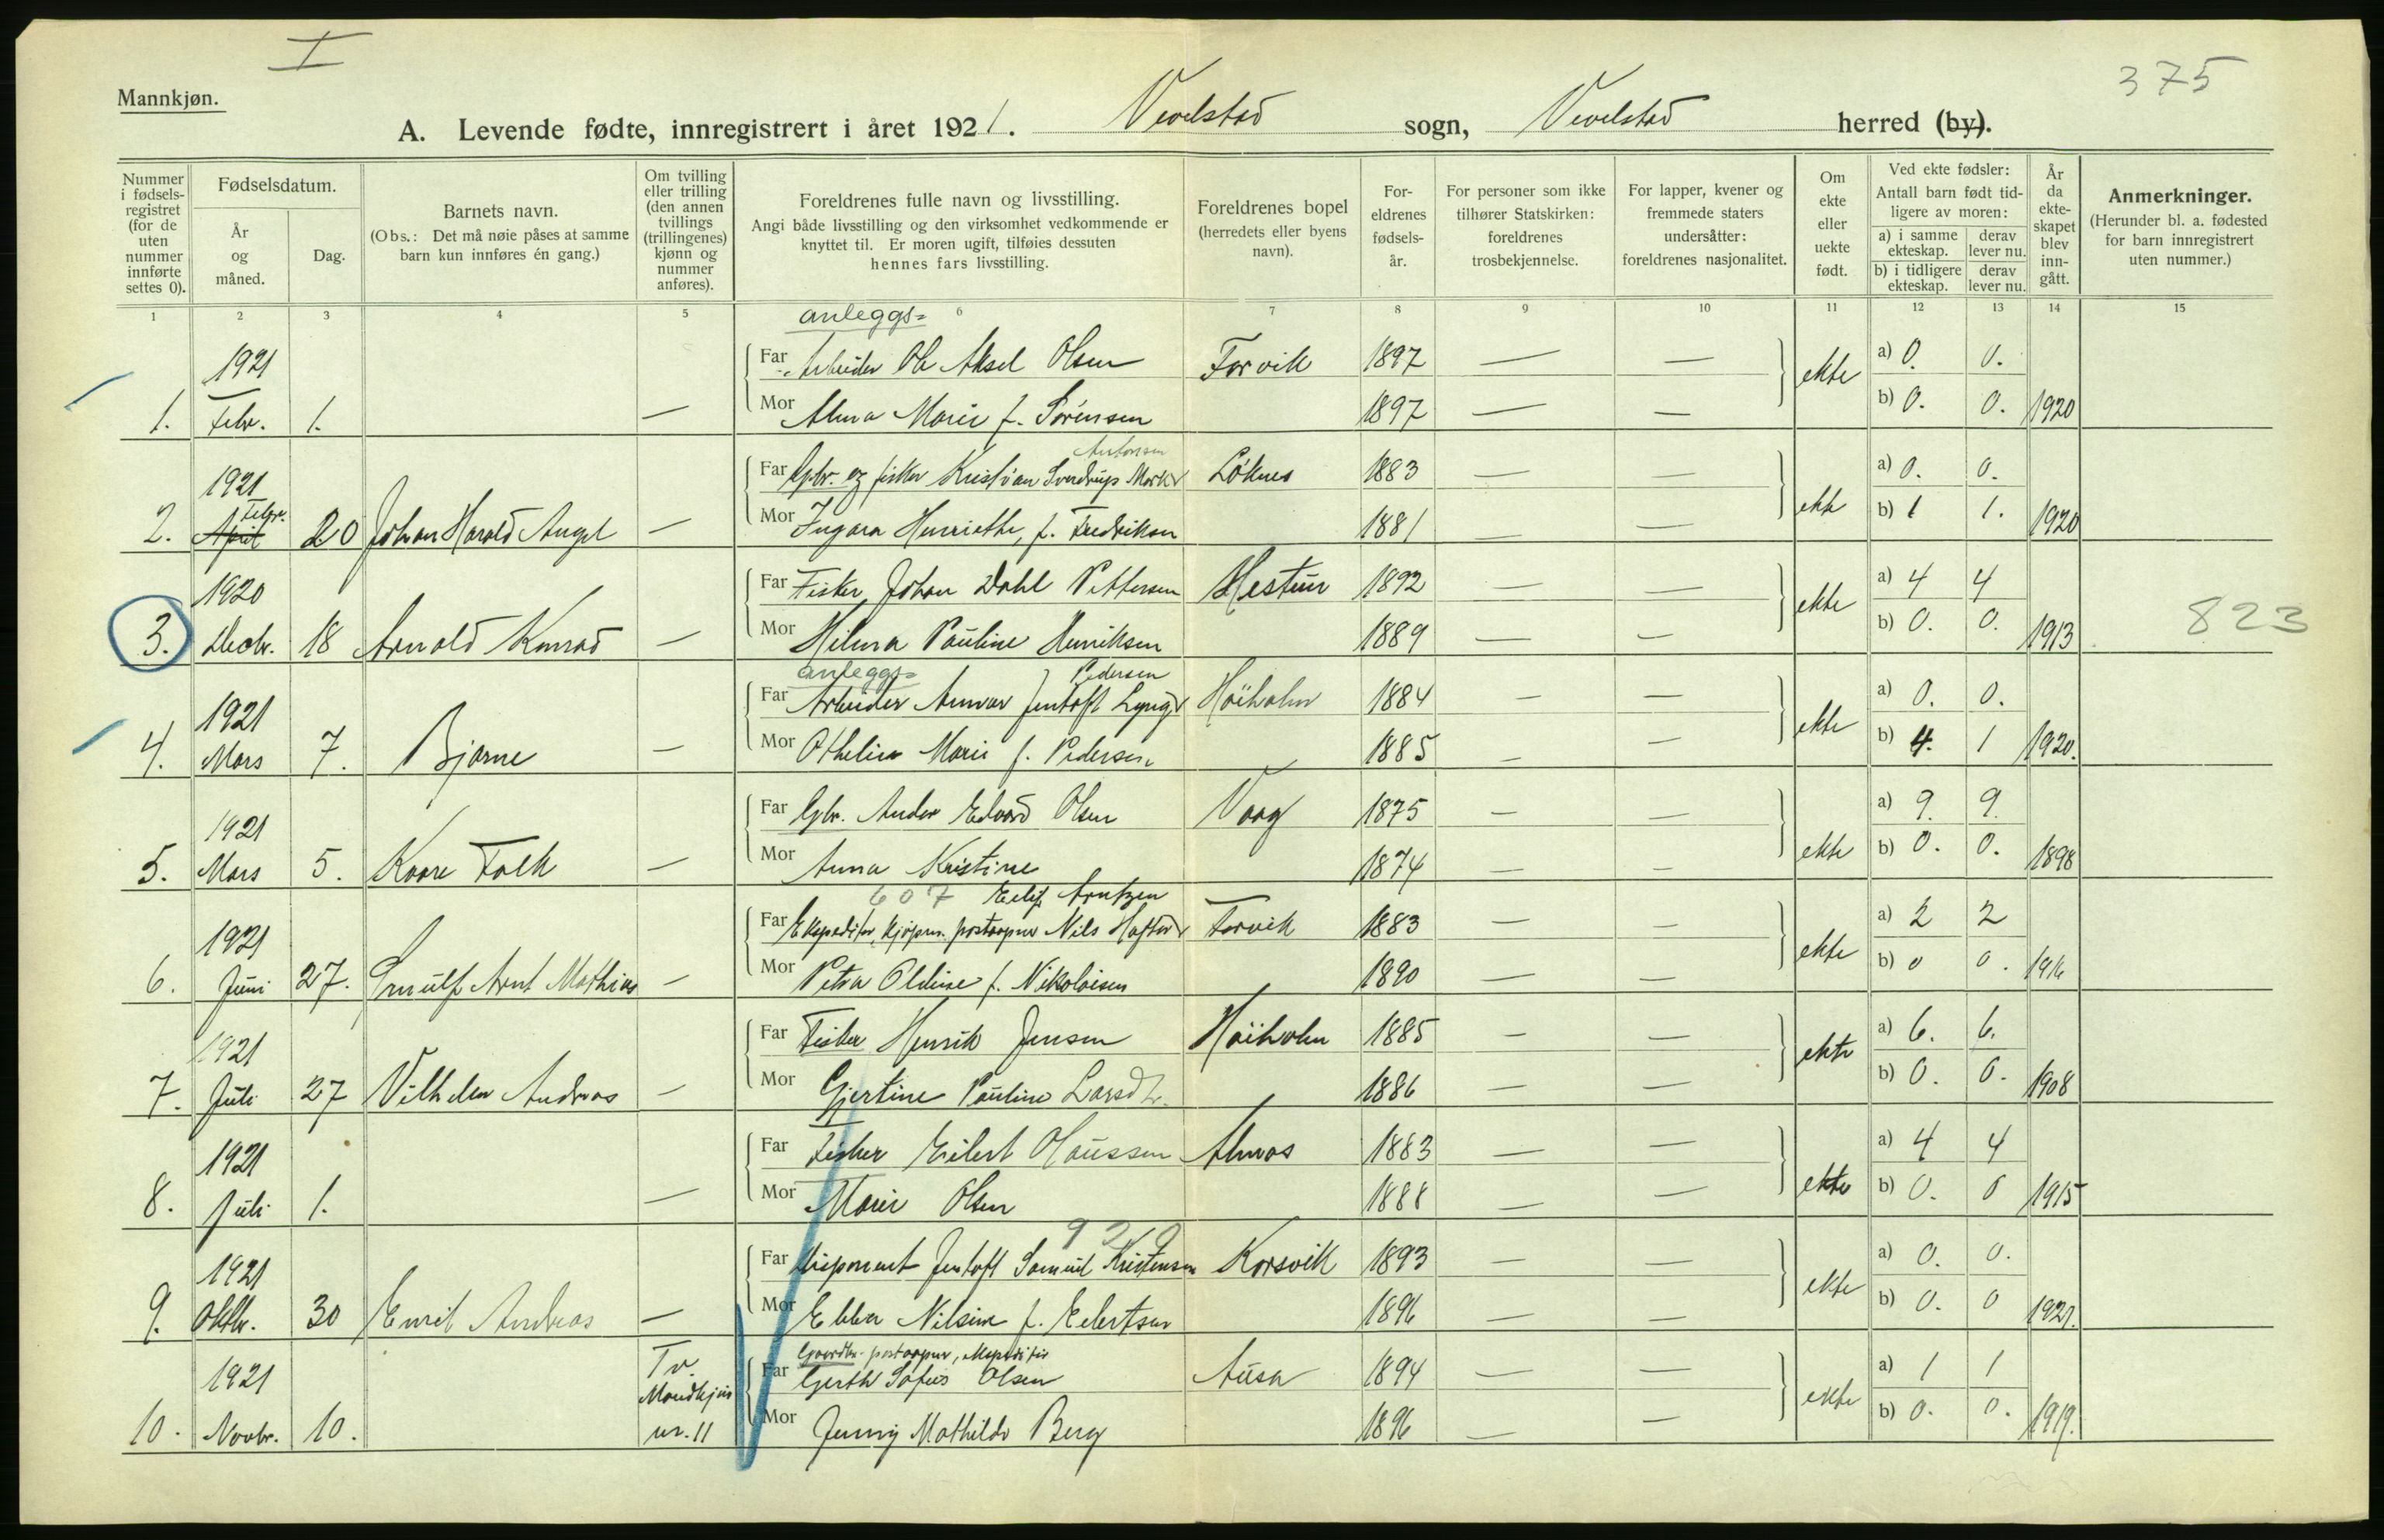 I
375
Mannkjøn.
A. Levende fødte, innregistrert i året 1921. Vevelstad sogn, Vevelstad herred (by).
Nummer i fødsels-registret (for de uten nummer innførte settes 0).
Fødselsdatum.
År og måned.
Dag.
Barnets navn.
(Obs.: Det må nøie påses at samme barn kun innføres én gang.)
Om tvilling eller trilling (den annen tvillings (trillingenes) kjønn og nummer anføres).
Foreldrenes fulle navn og livsstilling.
Angi både livsstilling og den virksomhet vedkommende er knyttet til. Er moren ugift, tilføies dessuten hennes fars livsstilling.
Foreldrenes bopel (herredets eller byens navn).
For-eldrenes fødsels-år.
For personer som ikke tilhører Statskirken: foreldrenes trosbekjennelse.
For lapper, kvener og fremmede staters undersåtter: foreldrenes nasjonalitet.
Om ekte eller uekte født.
Ved ekte fødsler:
Antall barn født tid-ligere av moren:
a) i samme ekteskap. derav lever nu.
b) i tidligere ekteskap. derav lever nu.
År da ekte-skapet blev inn-gått.
Anmerkninger.
(Herunder bl. a. fødested for barn innregistrert uten nummer.)
1 2 3 4 5 6 7 8 9 10 11 12 13 14 15
anleggs=
1921 Far Arbeider Ole Aksel Olsen Forvik 1897 — — ekte a) 0. 0.
1. Febr. 1. — Mor Alma Marie f. Sørensen 1897 — — b) 0. 0. 1920
Antonsen
1921 Far Gbr. og fisker Kristian Sverdrup Løknes 1883 — — ekte a) 0. 0.
Febr.
2. April 20 Johan Harald Angel — Mor Henriethe, f. Fredriksen 1881 — — b) 1 1. 1920
1920 Far Fisker Johan Dahl Pettersen Hestun 1892 — — ekte a) 4 4
3. Decbr. 18 Arnold Konrad — Mor Hilma Pauline Henriksen 1889 — — b) 0. 0. 1913 823
anleggs= Pedersen
1921 Far Arbeider Jentoft Høiholm 1884 — — ekte a) 0. 0.
4. Mars 7. Bjarne — Mor Othelie Marie f. Pedersen 1885 — — b) 4. 1 1920.
1921 Far Gbr. Ander Edvard Olsen Vaag 1875 — — ekte a) 9. 9.
5. Mars 5. Kaare Falk — Mor Anna Kristine 1874 — — b) 0. 0. 1898
607 Eilif Arntzen
1921 Far Ekspeditør, kjøpm. postaapner Nils Forvik 1883 — — ekte a) 2 2
6. Juni 27. Arnt Mathias — Mor Petra Oldine f. Nikolaisen 1890 — — b) 0 0. 1916
1921 Far Fisker Henrik Jensen Høiholm 1885 — — ekte a) 6. 6.
7. Juli 27 Vilhelm Andreas — Mor Gjertine Pauline Larsdtr. 1886 — — b) 0. 0. 1908
1921 Far Fisker Eilert Haussen Almos 1883 — — ekte a) 4 4
8. Juli 1. — Mor Marie Olsen 1888 — — b) 0. 0 1915
929
1921 Far Disponent Jentoft Samuel Kristensen Korsvik 1893 — — ekte a) 0. 0.
9. Oktbr. 30 Emil Andreas — Mor Ebba Nilsine f. Eilertsen 1896 — — b) 0. 0 1921.
Gaardbr. postaapner, ekspeditør
1921 Tv. Far Gerth Sofus Olsen Ausa 1894 — — ekte a) 1 1
Mandkjøn
10. Novbr. 10. nr. 11 Mor Jenny Mathilde Berg 1896 — — b) 0. 0. 1919.